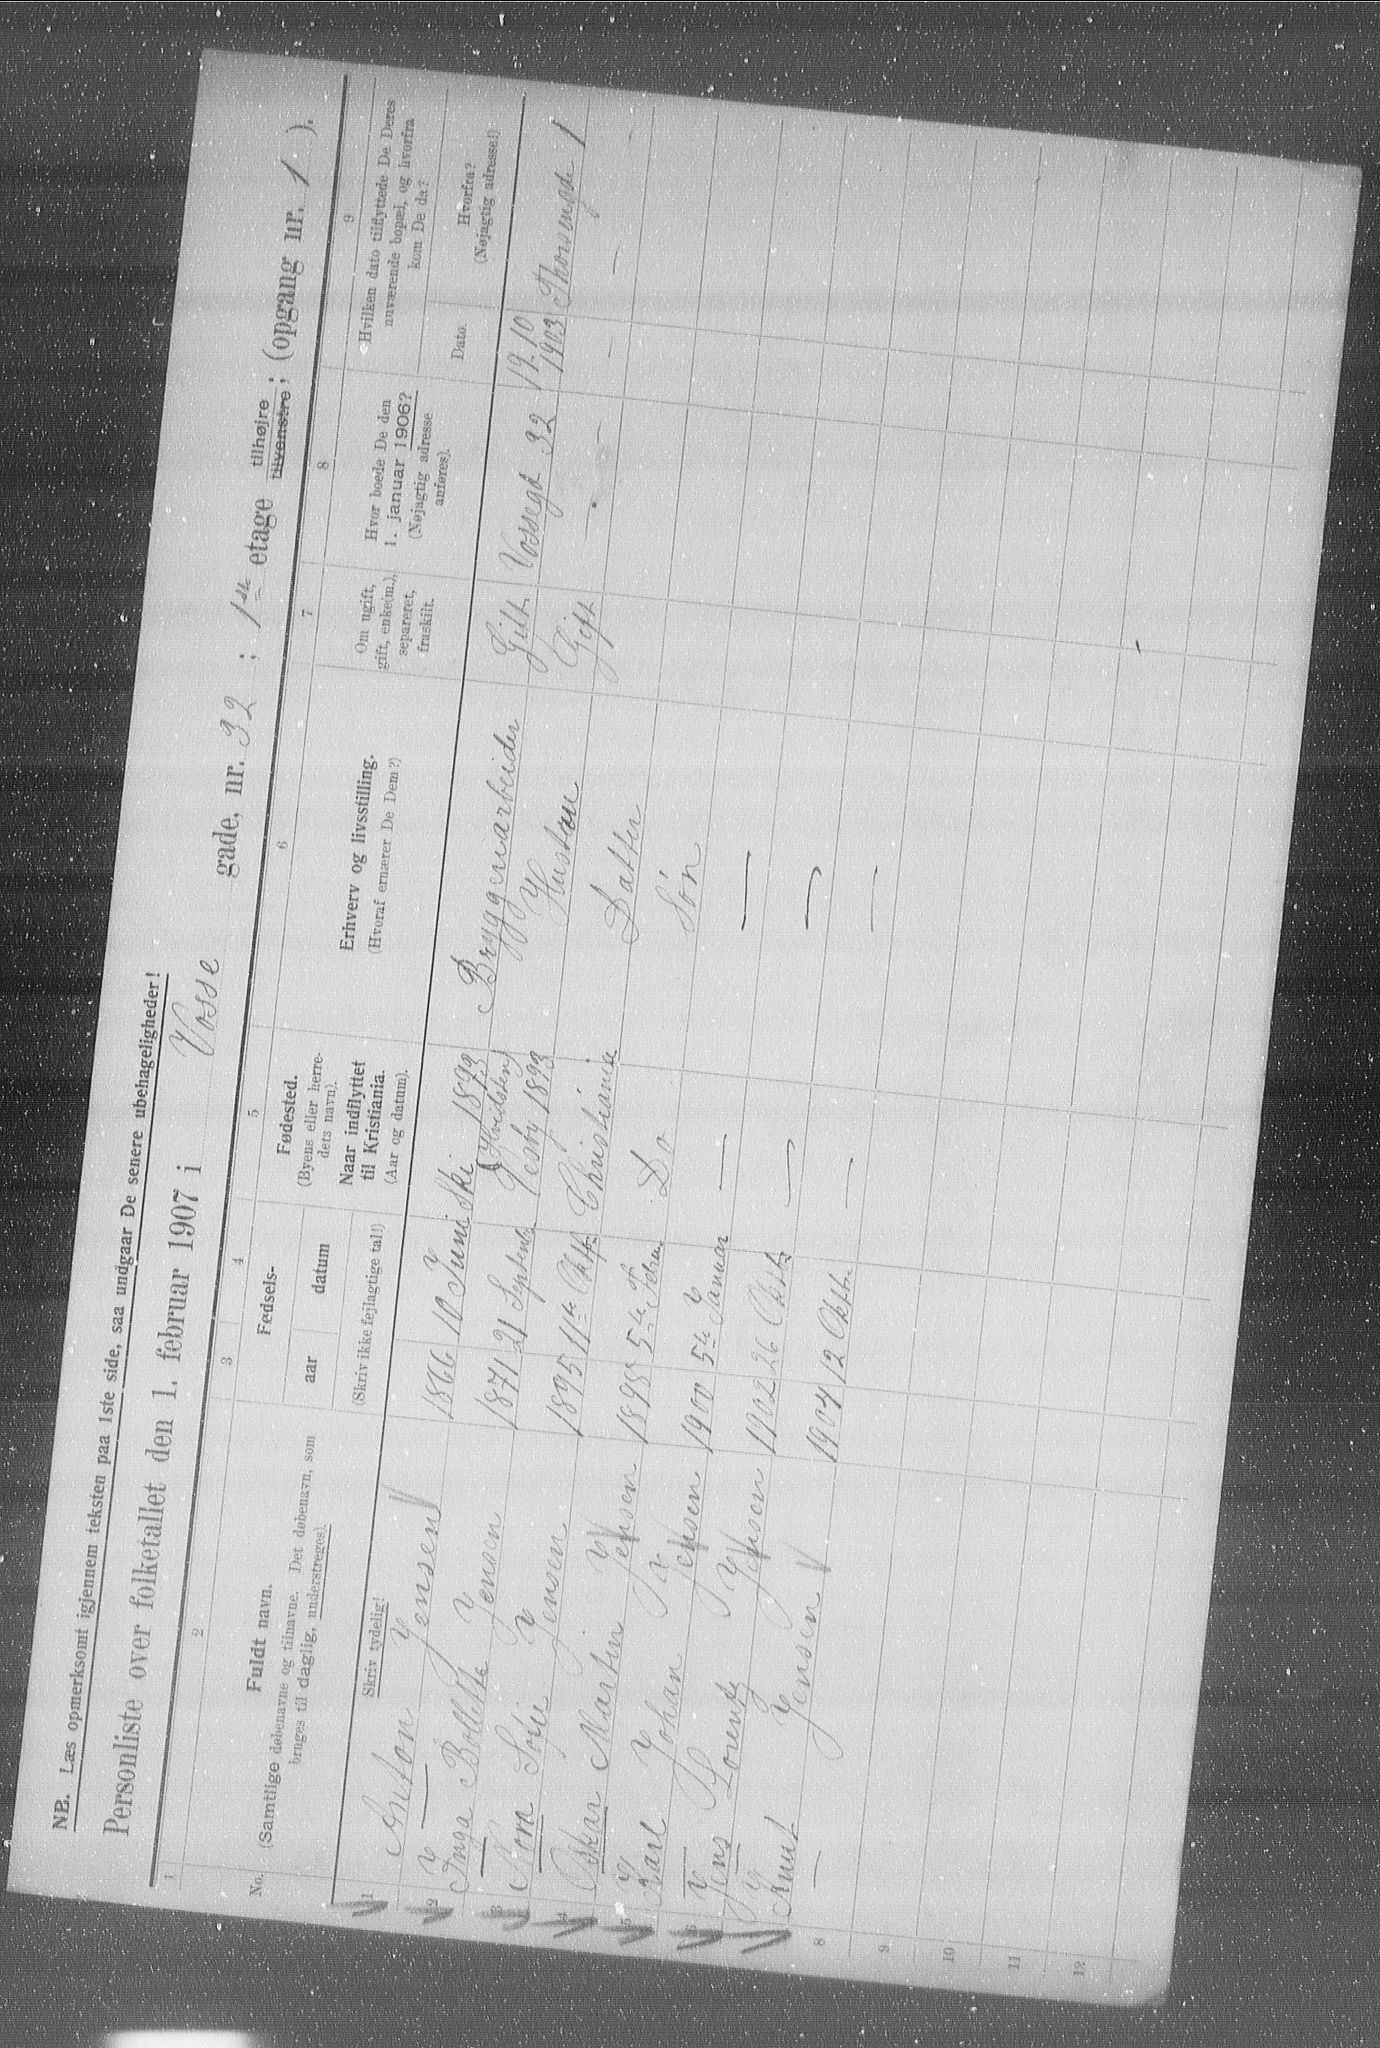 NB. Læs opmerksomt igjennem teksten paa 1ste side, saa undgaar De senere ubehageligheder!
Personliste over folketallet den 1. februar 1907 i Vosse gade, nr. 32 ; 1ste etage tilhøjre tilvenstre; (opgang nr. 1 ).
1 2 3 4 5 6 7 8 9
No.
Fuldt navn.
(Samtlige døbenavne og tilnavne. Det døbenavn, som
bruges til daglig, understreges).
Skriv tydelig!
Fødsels-
aar datum
(Skriv ikke fejlagtige tal!)
Fødested.
(Byens eller herre-
dets navn).
Naar indflyttet
til Kristiania.
(Aar og datum).
Erhverv og livsstilling.
(Hvoraf ernærer De Dem?)
Om ugift,
gift, enke(m.),
separeret,
fraskilt.
Hvor boede De den
1. januar 1906?
(Nøjagtig adresse
anføres).
Hvilken dato tilflyttede De Deres
nuværende bopæl, og hvorfra
kom De da?
Dato.
Hvorfra?
(Nøjagtig adresse!)
1 Anton Jensen 1866 10 Juni Ski 1893 Bryggeriarbeider Gift Vossegd 32 19/10 1903 Thorsengde 1
2 Inga Bollette Jensen 1871 21 Septembr (Hvidsten) Vestby 1893 Hustru Gift — — —
3 Nora Sofie Jensen 1895 11te Oktb Christiania Datter
4 Oskar Martin Jensen 1898 5te Febru Do Søn
5 Karl Johan Jensen 1900 5te Januar — —
6 Jens Lorentz Jensen 1902 26 Oktb — —
Knut Jensen 1904 12 Oktbr — —
8
9
10
11
12